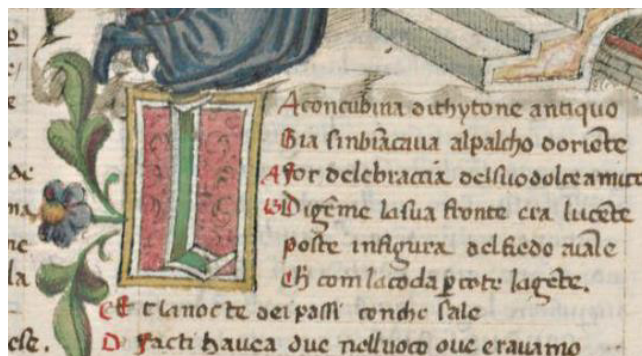 L
Aconcubina dithytone antiquo
Gia sinbiãcaua alpalcho doriẽte
for delebraccia delsuodolceamico
Digẽme lasua fronte era lucẽte
poste infigura delfredo aĩale
Ch con lacoda ꝑcote lagẽte.
Et lanocte dei passi conche sale
Facti hauea due nelluoco oue eravamo
de
ma
ne
la
ese.